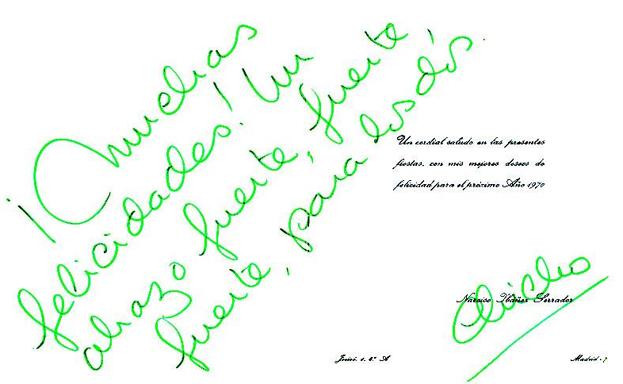 ¡Muchas
felicidades! Un
abrazo fuerte, fuerte,
fuerte, para los dós.
Un cordial saludo en las presentes
fiestas, con mis mejores deseos de
felicidad para el próximo Año 1970
Narciso Ibáñez Serrador
Chicho
4.º A
Madrid-7